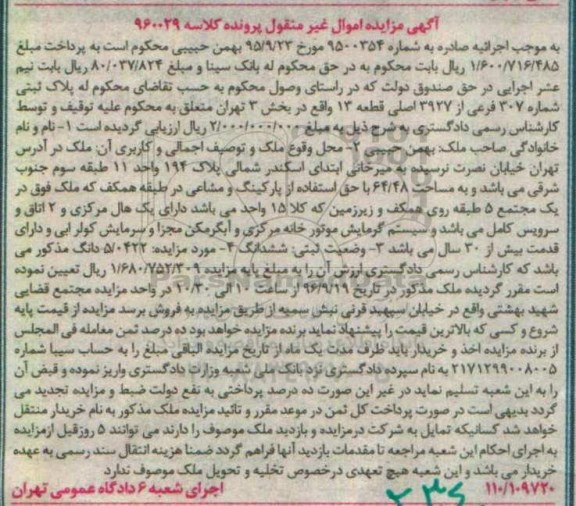 آگهی مزایده اموال غیر منقول پرونده کلاسه ۹۶۰۰۲۹
به موجب اجرائیه صادره به شماره ۹۵۰۰۳۵۴ مورخ ۹۵/۹/۲۳ بهمن حبیبی محکوم است به پرداخت مبلغ
۱/۶۰۰/۷۱۶/۴۸۵ ریال بابت محکوم به در حق محکوم له بانک سینا و مبلغ ۸۰/۰۳۷/۸۲۴ ریال بابت نیم
عشر اجرایی در حق صندوق دولت که در راستای وصول محکوم به حسب تقاضای محکوم له پلاک ثبتی
شماره ۳۰۷ فرعی از ۳۹۲۷ اصلی قطعه ۱۳ واقع در بخش ۳ تهران متعلق به محکوم علیه توقیف و توسط
کارشناس رسمی دادگستری به شرح ذیل به مبلغ ۲/۰۰۰/۰۰۰/۰۰۰ ریال ارزیابی گردیده است ۱- نام و نام
خانوادگی صاحب ملک: بهمن حبیبی ۲- محل وقوع ملک و توصیف اجمالی و کاربری آن: ملک در آدرس
تهران خیابان نصرت نرسیده به میرخانی ابتدای اسکندر شمالی پلاک ۱۹۴ واحد ۱۱ طبقه سوم جنوب
شرقی می باشد و به مساحت ۶۴/۴۸ با حق استفاده از پارکینگ و مشاعی در طبقه همکف که ملک فوق در
یک مجتمع ۵ طبقه روی همکف و زیرزمین که کلا ۱۵ واحد می باشد دارای یک هال مرکزی و ۲ اتاق و
سرویس کامل می باشد و سیستم گرمایش موتور خانه مرکزی و آبگرمکن مجزا و سرمایش کولر ابی و دارای
قدمت بیش از ۳۰ سال می باشد ۳- وضعیت ثبتی: ششدانگ ۴- مورد مزایده: ۵/۰۴۲۲ دانگ مذکور می
باشد که کارشناس رسمی دادگستری ارزش آن را به مبلغ پایه مزایده ۱/۶۸۰/۷۵۲/۳۰۹ ریال تعیین نموده
است مقرر گردیده ملک مذکور در تاریخ ۹۶/۹/۲۹ از ساعت ۱۰ الی ۱۰/۳۰ در واحد مزایده مجتمع قضایی
شهید بهشتی واقع در خیابان سپهبد قرنی نبش سمیه از طریق مزایده به فروش برسد مزایده از قیمت پایه
شروع و کسی که بالاترین قیمت را پیشنهاد نماید برنده مزایده خواهد بود ده درصد ثمن معامله فی المجلس
از برنده مزایده اخذ و خریدار باید ظرف مدت یک ماه از تاریخ مزایده الباقی مبلغ را به حساب سیبا شماره
۲۱۷۱۲۹۹۰۰۸۰۰۵ به نام سپرده دادگستری نزد بانک ملی شعبه وزارت دادگستری واریز نموده و قبض آن
را به این شعبه تسلیم نماید در غیر این صورت ده درصد پرداختی به نفع دولت ضبط و مزایده تجدید می
گردد بدیهی است در صورت پرداخت کل ثمن در موعد مقرر و تائید مزایده ملک مذکور به نام خریدار منتقل
خواهد شد کسانیکه تمایل به شرکت درمزایده و بازدید ملک موصوف را دارند می توانند ۵ روزقبل ازمزایده
به اجرای احکام این شعبه مراجعه تا مقدمات بازدید آنها فراهم گردد ضمنا هزینه انتقال سند رسمی به عهده
خریدار می باشد و این شعبه هیچ تعهدی درخصوص تخلیه و تحویل ملک موصوف ندارد
۱۱۰/۱۰۹۷۲۰ اجرای شعبه ۶ دادگاه عمومی تهران